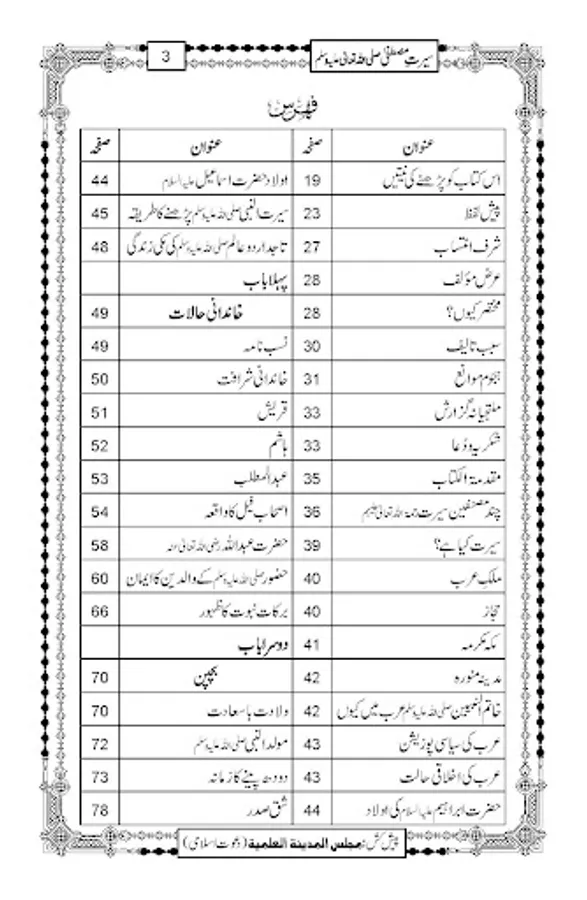 سیرتِ مصطفی صلی اللہ تعالیٰ علیہ وسلم
3
فہرس
عنوان صفحہ عنوان صفحہ
اس کتاب کو پڑھنے کی نیتیں 19 اولاد حضرت اسماعیل علیہ السلام 44
پیش لفظ 23 سیرت النبی صلی اللہ علیہ وسلم پڑھنے کا طریقہ 45
شرف انتساب 27 تاجدار دو عالم صلی اللہ علیہ وسلم کی مکی زندگی 48
عرض مؤلف 28 پہلا باب
مختصر کیوں؟ 28 خاندانی حالات 49
سبب تالیف 30 نسب نامہ 49
ہجوم موانع 31 خاندانی شرافت 50
ملتجیانہ گزارش 33 قریش 51
شکریہ و دُعا 33 ہاشم 52
مقدمۃ الکتاب 35 عبدالمطلب 53
چند مصنفین سیرت رحمۃ اللہ تعالیٰ علیہم 36 اصحاب فیل کا واقعہ 54
سیرت کیا ہے؟ 39 حضرت عبداللہ رضی اللہ تعالیٰ عنہ 58
ملک عرب 40 حضور صلی اللہ علیہ وسلم کے والدین کا ایمان 60
حجاز 40 برکات نبوت کا ظہور 66
مکہ مکرمہ 41 دوسرا باب
مدینہ منورہ 42 بچپن 70
خاتم النبیین صلی اللہ علیہ وسلم عرب میں کیوں 42 ولادت باسعادت 70
عرب کی سیاسی پوزیشن 43 مولد النبی صلی اللہ علیہ وسلم 72
عرب کی اخلاقی حالت 43 دودھ پینے کا زمانہ 73
حضرت ابراہیم علیہ السلام کی اولاد 44 شق صدر 78
پیش کش: مجلس المدينة العلمية (دعوت اسلامی)